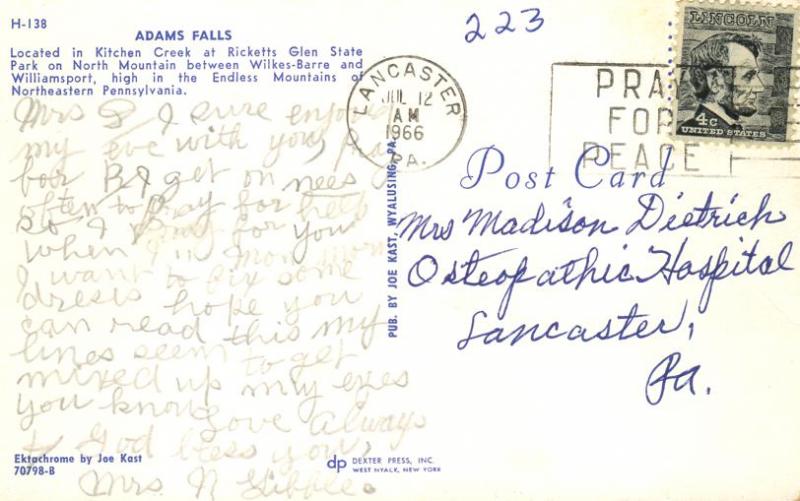 H-138
ADAMS FALLS
Located in Kitchen Creek at Ricketts Glen State
Park on North Mountain between Wilkes-Barre and
Williamsport, high in the Endless Mountains of
Northeastern Pennsylvania.
Mrs D I sure enjoyed
my eve with you,
on nees
often to Pray for help
so I Pray for you
when I'm
I want to buy some
dress hope you
can read this my
lines seem to get
mixed up my eyes
you know Love always
& God bless you
Mrs N
Ektachrome by Joe Kast
70798-B
PUB. BY JOE KAST, WYALUSING, PA.
dp DEXTER PRESS, INC.
WEST NYACK, NEW YORK
223
LANCASTER
JUL 12
AM
1966
PA.
PRAY
FOR
PEACE
LINCOLN
4c
UNITED STATES
Post Card
Mrs Madison Dietrich
Osteopathic Hospital
Lancaster,
Pa.